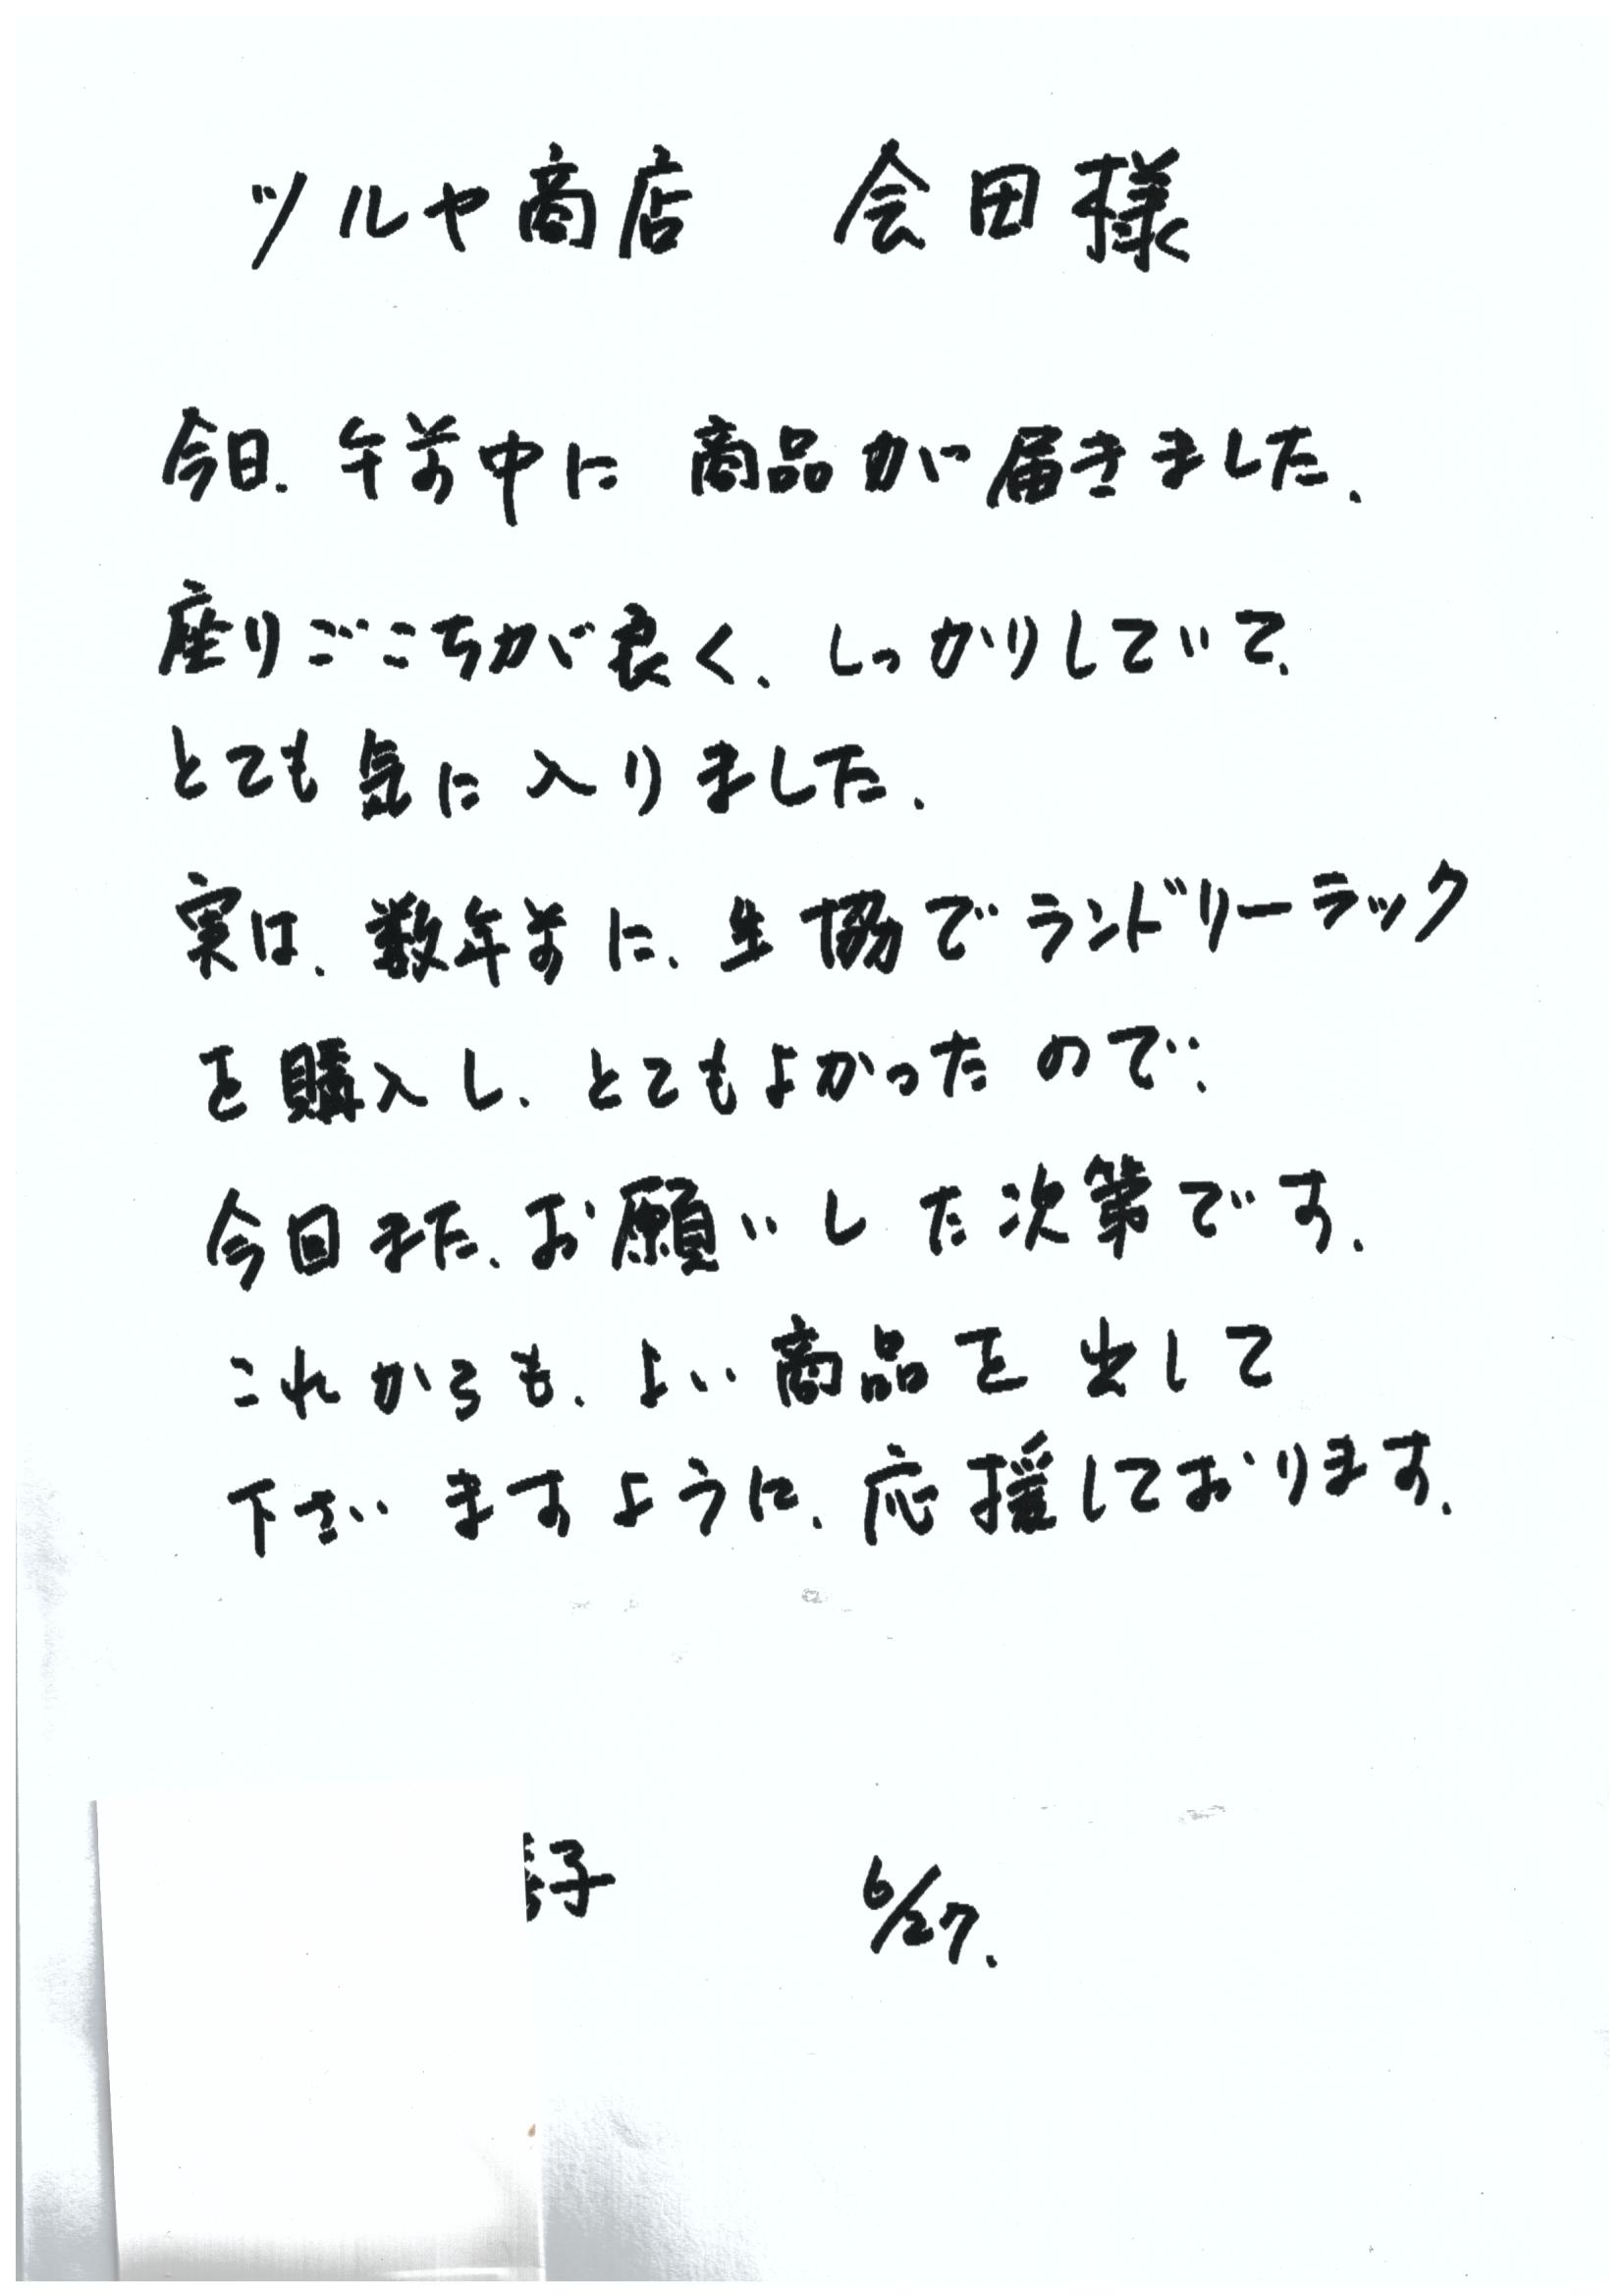 ツルヤ商店　会田様
今日、午前中に商品が届きました。
座りごこちが良く、しっかりしていて、
とても気に入りました。
実は、数年前に、生協でランドリーラック
を購入し、とてもよかったので、
今回また、お願いした次第です。
これからも、よい商品を出して
下さいますように、応援しております。
子　6/27.